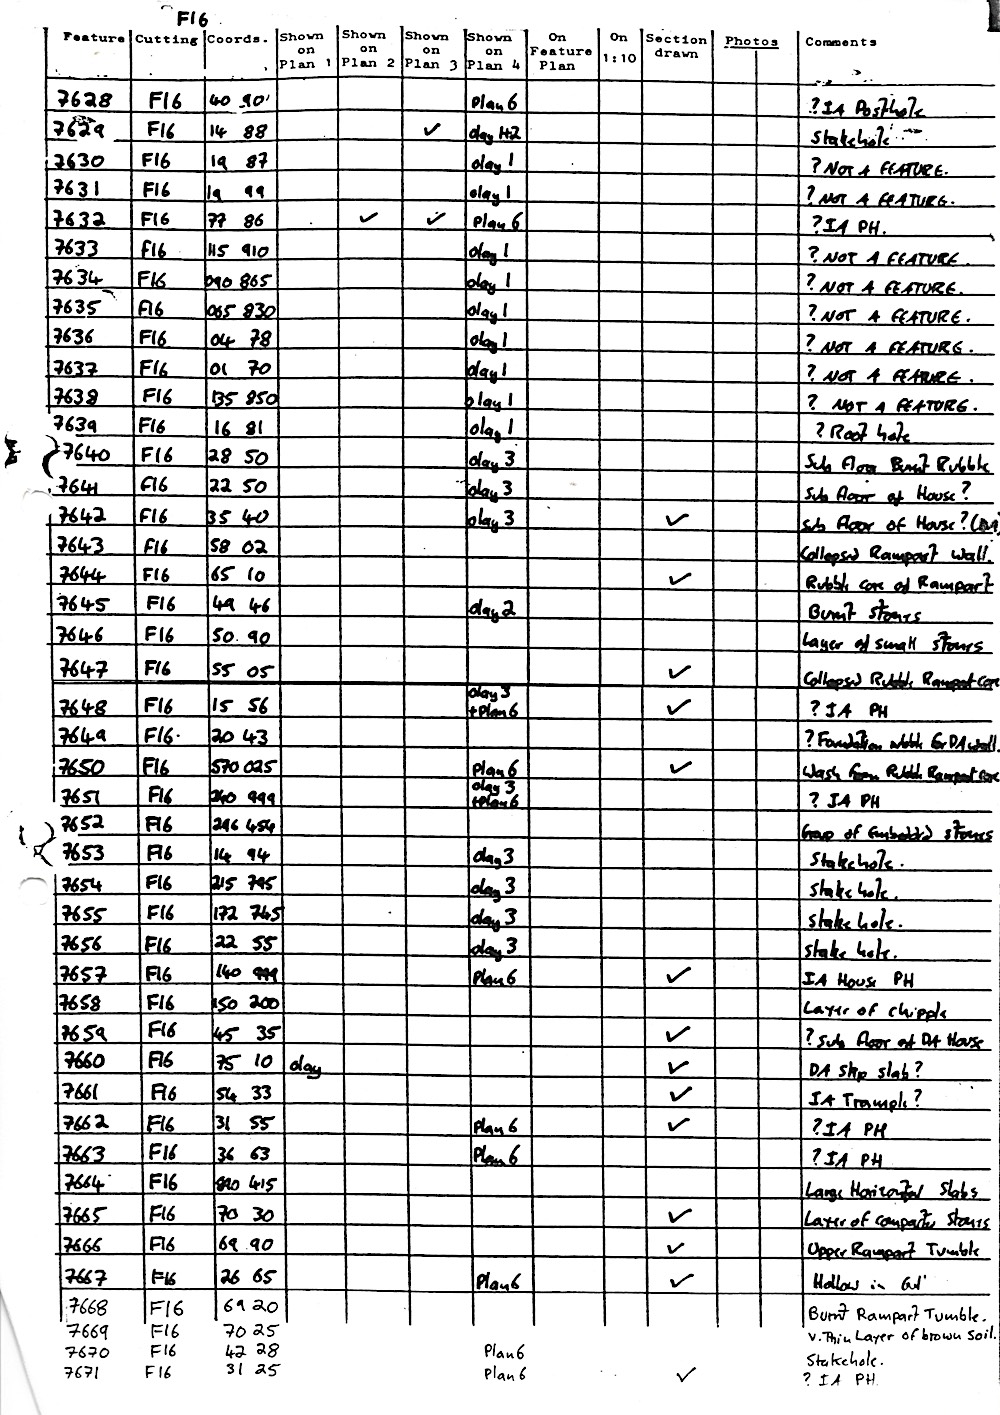 F16
Feature Cutting Coords. Shown on Plan 1 Shown on Plan 2 Shown on Plan 3 Shown on Plan 4 On Feature Plan On 1:10 Section drawn Photos Comments
7628 F16 40 90 Plan 6 ? IA Posthole
7629 F16 14 88 ✓ olay 1+2 Stakehole
7630 F16 19 87 olay 1 ? NOT A FEATURE.
7631 F16 19 99 olay 1 ? NOT A FEATURE.
7632 F16 77 86 ✓ ✓ Plan 6 ? IA PH.
7633 F16 115 910 olay 1 ? NOT A FEATURE.
7634 F16 090 865 olay 1 ? NOT A FEATURE.
7635 F16 065 830 olay 1 ? NOT A FEATURE.
7636 F16 04 78 olay 1 ? NOT A FEATURE.
7637 F16 01 70 olay 1 ? NOT A FEATURE.
7638 F16 135 850 olay 1 ? NOT A FEATURE.
7639 F16 16 81 olay 1 ? Root hole
7640 F16 28 50 olay 3 Sub Floor Burnt Rubble
7641 F16 22 50 olay 3 Sub floor of House?
7642 F16 35 40 olay 3 ✓ Sub floor of House? (DA)
7643 F16 58 02 Collapsed Rampart Wall.
7644 F16 65 10 ✓ Rubble core of Rampart
7645 F16 49 46 olay 2 Burnt stones
7646 F16 50.90 Layer of small stones
7647 F16 55 05 ✓ Collapsed Rubble Rampart Core
7648 F16 15 56 olay 3 +Plan 6 ✓ ? IA PH
7649 F16. 20 43 ? Foundation rubble for DA wall.
7650 F16 570 025 Plan 6 ✓ Wash from Rubble Rampart Core
7651 F16 240 999 olay 3 +Plan 6 ? IA PH
7652 F16 296 454 Group of Embedded stones
7653 F16 14 94 olay 3 Stakehole.
7654 F16 215 795 olay 3 Stake hole.
7655 F16 172 745 olay 3 Stake hole.
7656 F16 22 55 olay 3 Stake hole.
7657 F16 140 999 Plan 6 ✓ IA House PH
7658 F16 150 200 Layer of chipple
7659 F16 45 35 ✓ ? Sub floor of DA House
7660 F16 75 10 olay ✓ DA Step slab?
7661 F16 54 33 ✓ IA Trample?
7662 F16 31 55 Plan 6 ✓ ? IA PH
7663 F16 36 63 Plan 6 ? IA PH
7664 F16 415 Large Horizontal Slabs
7665 F16 70 30 ✓ Layer of compacted Stones
7666 F16 69 90 ✓ Upper Rampart Tumble
7667 F16 26 65 Plan 6 ✓ Hollow in
7668 F16 69 20 Burnt Rampart Tumble.
7669 F16 70 25 v. Thin Layer of brown Soil.
7670 F16 42 28 Plan 6 Stakehole.
7671 F16 31 25 Plan 6 ✓ ? IA PH